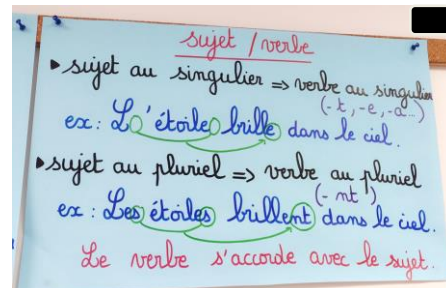 sujet / verbe
▸ sujet au singulier => verbe au singulier
(-t, -e, -a...)
ex : L'étoile brille dans le ciel.
▸ sujet au pluriel => verbe au pluriel
(- nt)
ex : Les étoiles brillent dans le ciel.
Le verbe s'accorde avec le sujet.